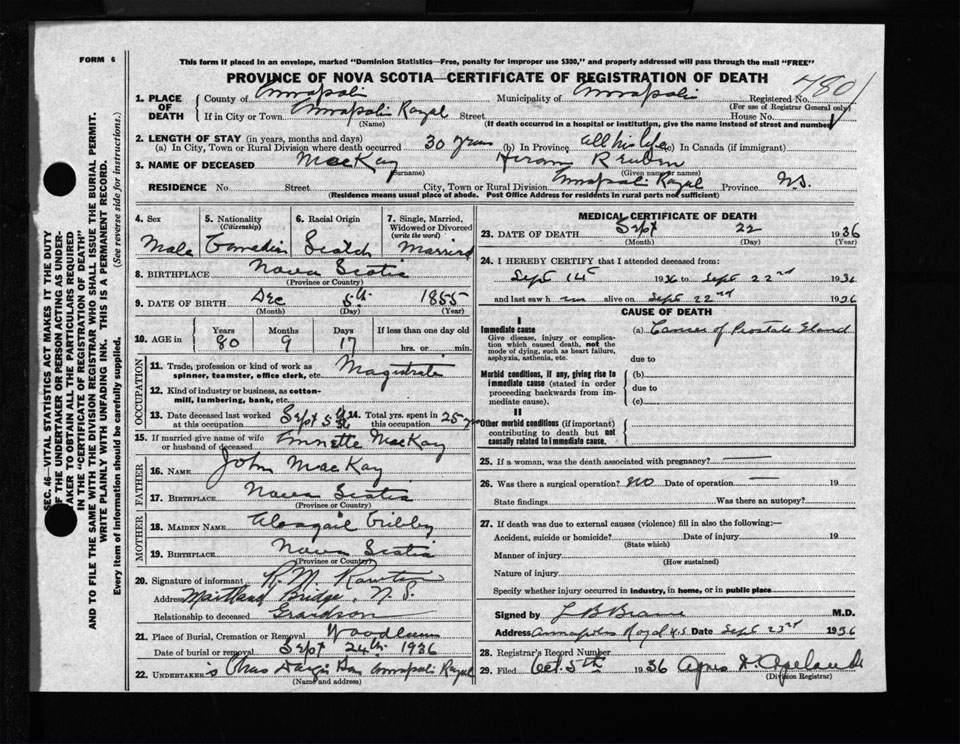 FORM 6
This form if placed in an envelope, marked "Dominion Statistics—Free, penalty for improper use $300," and properly addressed will pass through the mail "FREE"
PROVINCE OF NOVA SCOTIA—CERTIFICATE OF REGISTRATION OF DEATH
480
1. PLACE OF DEATH { County of Annapolis Municipality of Annapolis Registered No.
(For use of Registrar General only)
If in City or Town Annapolis Royal Street House No.
(Name) (If death occurred in a hospital or institution, give the name instead of street and number)
2. LENGTH OF STAY (in years, months and days)
(a) In City, Town or Rural Division where death occurred 30 years (b) In Province all his life (c) In Canada (if immigrant)
3. NAME OF DECEASED MacKay Hiram Reuben
(Surname) (Given name or names)
RESIDENCE No. Street City, Town or Rural Division Annapolis Royal Province N.S.
(Residence means usual place of abode. Post Office Address for residents in rural parts not sufficient)
4. Sex 5. Nationality (Citizenship) 6. Racial Origin 7. Single, Married, Widowed or Divorced (write the word)
Male Canadian Scotch Married
8. BIRTHPLACE Nova Scotia
(Province or Country)
9. DATE OF BIRTH Dec 5th 1855
(Month) (Day) (Year)
10. AGE in { Years Months Days If less than one day old
80 9 17 hrs. or min.
OCCUPATION
11. Trade, profession or kind of work as spinner, teamster, office clerk, etc. Magistrate
12. Kind of industry or business, as cotton-mill, lumbering, bank, etc.
13. Date deceased last worked at this occupation Sept 5th 36 14. Total yrs. spent in this occupation 25 yrs
15. If married give name of wife or husband of deceased Annette MacKay
FATHER
16. NAME John MacKay
17. BIRTHPLACE Nova Scotia
(Province or Country)
MOTHER
18. MAIDEN NAME
19. BIRTHPLACE Nova Scotia
(Province or Country)
20. Signature of informant R. M.
Address Maitland Bridge, N.S.
Relationship to deceased Grandson
21. Place of Burial, Cremation or Removal
Date of burial or removal Sept 24th 1936
22. UNDERTAKER's Chas Annapolis Royal
(Name and address)
MEDICAL CERTIFICATE OF DEATH
23. DATE OF DEATH Sept 22 1936
(Month) (Day) (Year)
24. I HEREBY CERTIFY that I attended deceased from:
Sept 14 1936 to Sept 22nd 1936
and last saw him alive on Sept 22nd 1936
CAUSE OF DEATH
I
Immediate cause (a) Cancer of Prostate Gland
Give disease, injury or complication which caused death, not the mode of dying, such as heart failure, asphyxia, asthenia, etc.
due to
Morbid conditions, if any, giving rise to immediate cause (stated in order proceeding backwards from immediate cause).
(b)
due to
(c)
II
Other morbid conditions (if important) contributing to death but not causally related to immediate cause.
25. If a woman, was the death associated with pregnancy? —
26. Was there a surgical operation? No Date of operation — 19
State findings Was there an autopsy?
27. If death was due to external causes (violence) fill in also the following:—
Accident, suicide or homicide? Date of injury 19
(State which)
Manner of injury
(How sustained)
Nature of injury
Specify whether injury occurred in industry, in home, or in public place
Signed by L B Braine M.D.
Address Annapolis Royal N.S. Date Sept 23rd 1936
28. Registrar's Record Number
29. Filed Oct. 5th 1936
(Division Registrar)
SEC. 46—VITAL STATISTICS ACT MAKES IT THE DUTY
OF THE UNDERTAKER OR PERSON ACTING AS UNDERTAKER TO OBTAIN ALL THE PARTICULARS REQUIRED
IN THE "CERTIFICATE OF REGISTRATION OF DEATH"
AND TO FILE THE SAME WITH THE DIVISION REGISTRAR WHO SHALL ISSUE THE BURIAL PERMIT.
WRITE PLAINLY WITH UNFADING INK. THIS IS A PERMANENT RECORD.
Every item of information should be carefully supplied. (See reverse side for instructions.)